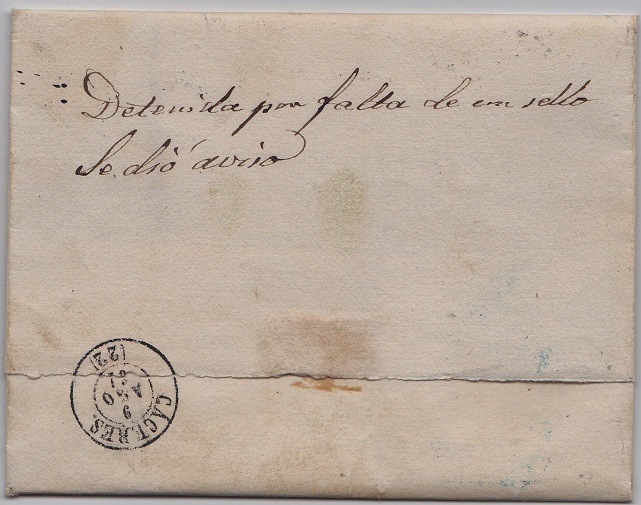 Detenida por falta de un sello
Se dió aviso
CACERES.
9
AGO
(22)